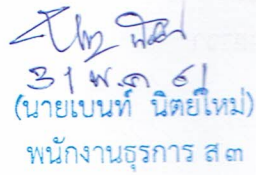 31 พ.ค 61
(นายเบนท์ นิตย์ใหม่)
พนักงานธุรการ ส ๓